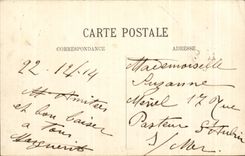 CARTE POSTALE
CORRESPONDANCE
ADRESSE
22-12/14
Amitiés
et bon baiser
à tous
Marguerite
Mademoiselle
Suzanne
Meriel 17 Rue
Pasteur St Aubin
S/Mer